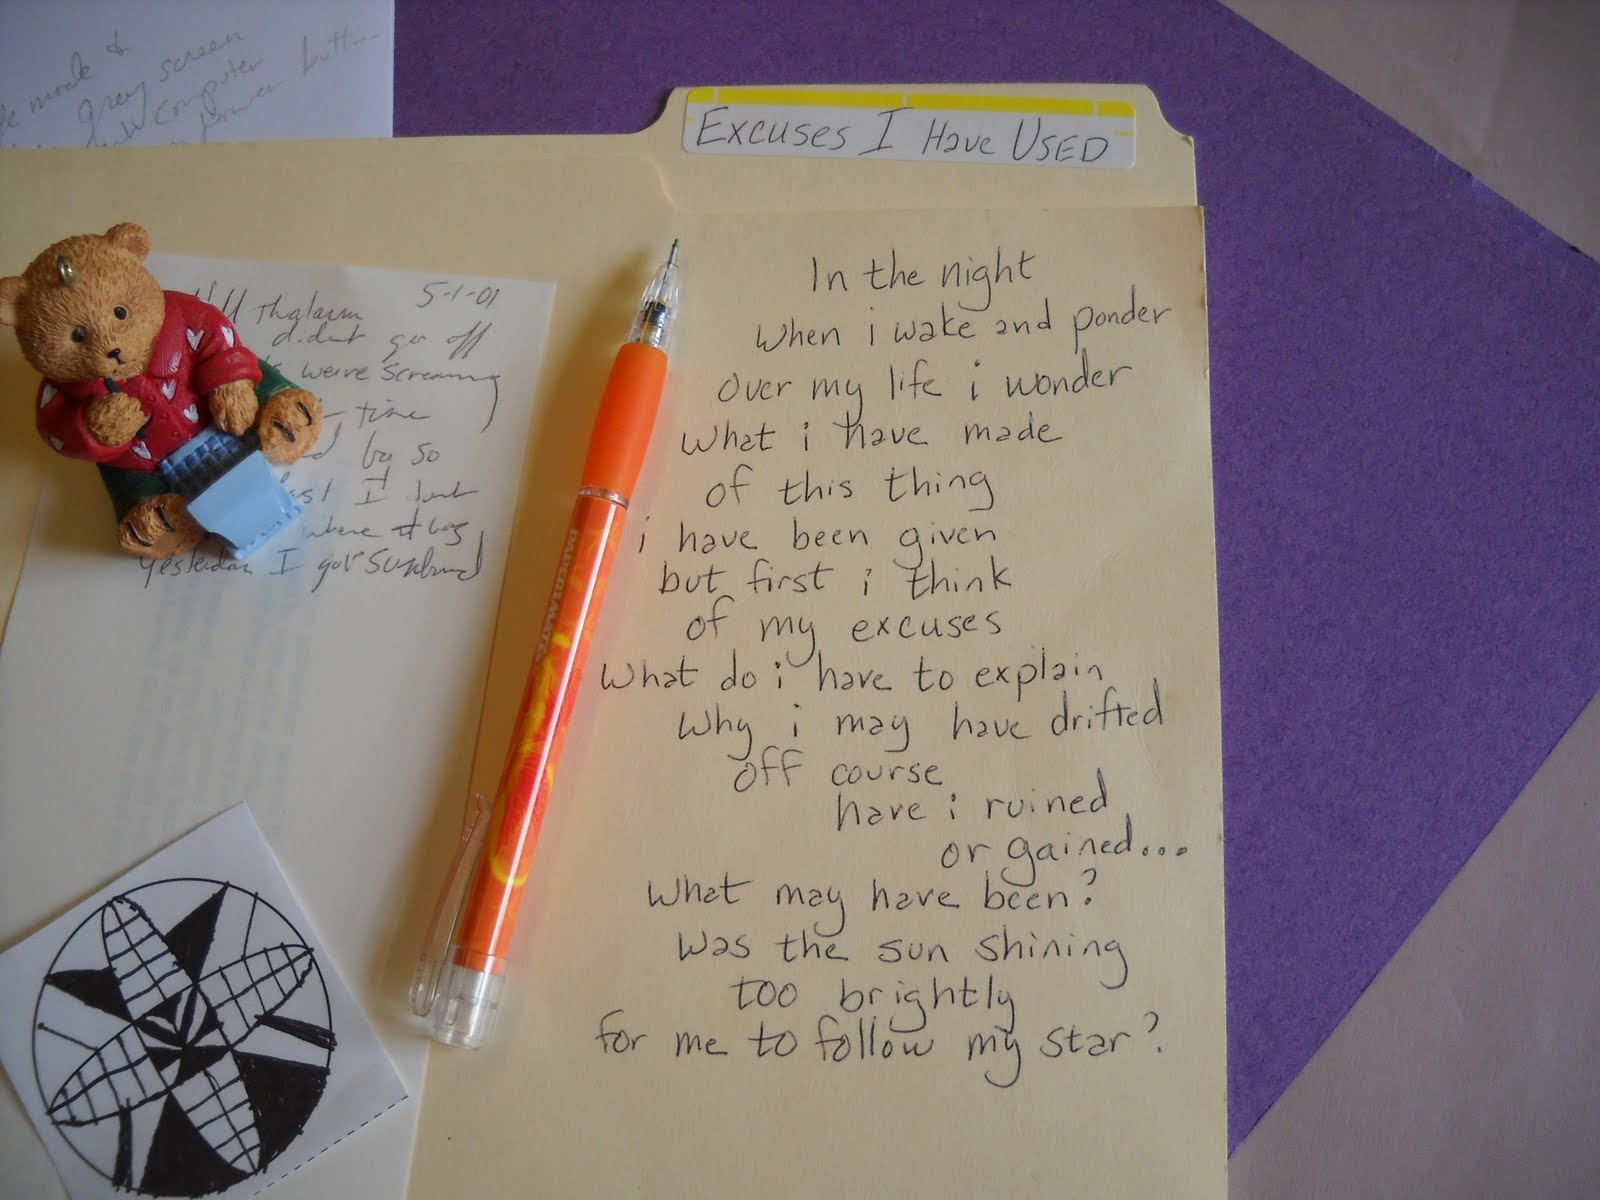 mode &
grey screen
computer
power butt...
Excuses I Have USED
5-1-01
didnt go off
were screaming
time
by so
I
where
Yesterday I got
PAPER MATE
In the night
When i wake and ponder
over my life i wonder
What i have made
of this thing
i have been given
but first i think
of my excuses
What do i have to explain
Why i may have drifted
off course
have i ruined
or gained...
What may have been?
Was the sun shining
too brightly
for me to follow my star?